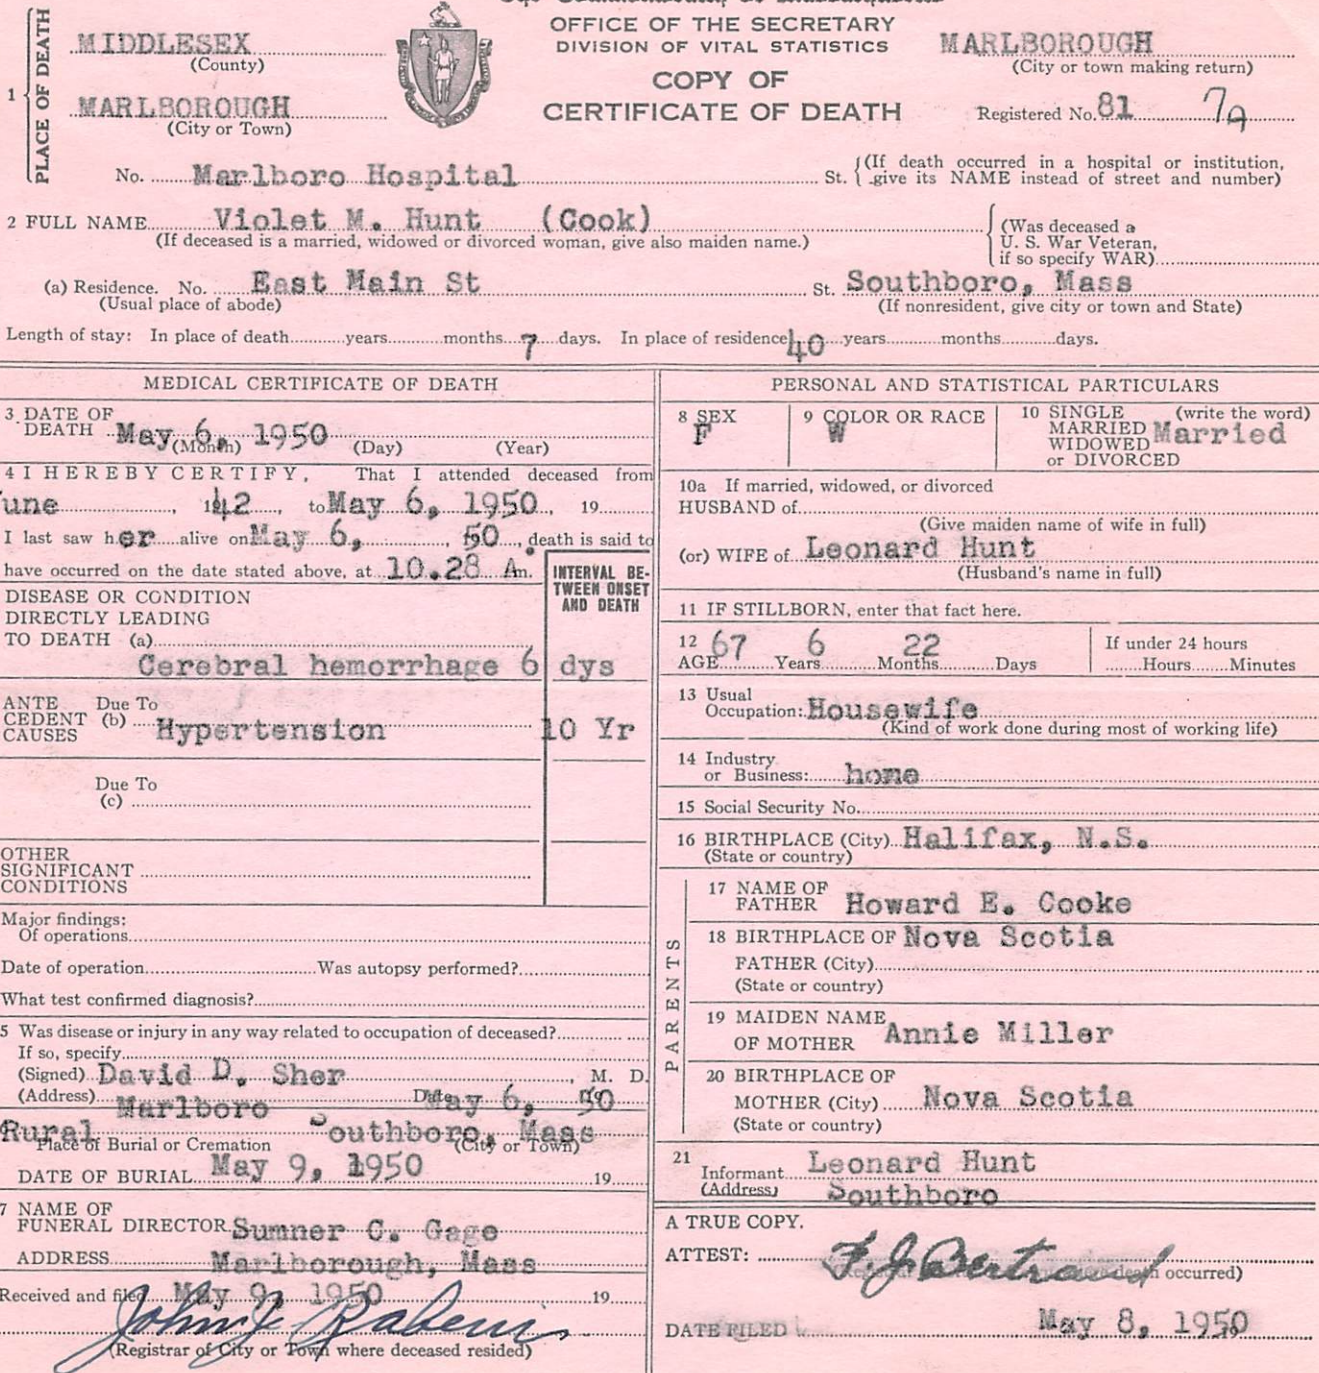 OFFICE OF THE SECRETARY
DIVISION OF VITAL STATISTICS
COPY OF
CERTIFICATE OF DEATH
1 PLACE OF DEATH
MIDDLESEX
(County)
MARLBOROUGH
(City or Town)
MARLBOROUGH
(City or town making return)
Registered No. 81
No. Marlboro Hospital St. (If death occurred in a hospital or institution,
give its NAME instead of street and number)
2 FULL NAME Violet M. Hunt (Cook)
(If deceased is a married, widowed or divorced woman, give also maiden name.)
(Was deceased a
U. S. War Veteran,
if so specify WAR)
(a) Residence. No. East Main St St. Southboro, Mass
(Usual place of abode) (If nonresident, give city or town and State)
Length of stay: In place of death years months 7 days. In place of residence 40 years months days.
MEDICAL CERTIFICATE OF DEATH
3 DATE OF
DEATH May 6, 1950
(Month) (Day) (Year)
4 I HEREBY CERTIFY, That I attended deceased from
une , 1942 , to May 6, 1950 , 19
I last saw her alive on May 6, , 50 , death is said to
have occurred on the date stated above, at 10.28 Am.
INTERVAL BE-
TWEEN ONSET
AND DEATH
DISEASE OR CONDITION
DIRECTLY LEADING
TO DEATH (a)
Cerebral hemorrhage 6 dys
ANTE Due To
CEDENT (b) Hypertension 10 Yr
CAUSES
Due To
(c)
OTHER
SIGNIFICANT
CONDITIONS
Major findings:
Of operations
Date of operation Was autopsy performed?
What test confirmed diagnosis?
5 Was disease or injury in any way related to occupation of deceased?
If so, specify
(Signed) David D. Sher , M. D.
(Address) Marlboro Date May 6, 50
Rural Southboro, Mass
Place of Burial or Cremation (City or Town)
DATE OF BURIAL May 9, 1950 19
7 NAME OF
FUNERAL DIRECTOR Sumner C. Gage
ADDRESS Marlborough, Mass
Received and filed May 9, 1950 19
John J
(Registrar of City or Town where deceased resided)
PERSONAL AND STATISTICAL PARTICULARS
8 SEX
F
9 COLOR OR RACE
W
10 SINGLE (write the word)
MARRIED Married
WIDOWED
or DIVORCED
10a If married, widowed, or divorced
HUSBAND of
(Give maiden name of wife in full)
(or) WIFE of Leonard Hunt
(Husband's name in full)
11 IF STILLBORN, enter that fact here.
12 AGE 67 Years 6 Months 22 Days
If under 24 hours
Hours Minutes
13 Usual
Occupation: Housewife
(Kind of work done during most of working life)
14 Industry
or Business: home
15 Social Security No.
16 BIRTHPLACE (City) Halifax, N.S.
(State or country)
PARENTS
17 NAME OF
FATHER Howard E. Cooke
18 BIRTHPLACE OF Nova Scotia
FATHER (City)
(State or country)
19 MAIDEN NAME
OF MOTHER Annie Miller
20 BIRTHPLACE OF
MOTHER (City) Nova Scotia
(State or country)
21
Informant Leonard Hunt
(Address) Southboro
A TRUE COPY.
ATTEST: F. J. Bertrand
occurred)
DATE FILED May 8, 1950